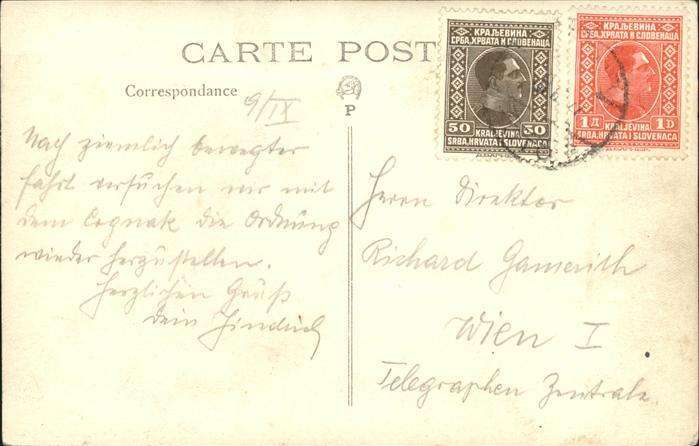 CARTE POST
Correspondance
P
9/IX
Nach ziemlich bewegter
Fahrt versuchen wir mit
dem Cognak die Ordnung
wieder herzustellen.
Herzlichen Gruß
Dein
КРАЉЕВИНА
СРБА, ХРВАТА И СЛОВЕНАЦА
50 50
KRALJEVINA
SRBA, HRVATA I SLOVENACA
КРАЉЕВИНА
СРБА, ХРВАТА И СЛОВЕНАЦА
1 Д 1 D
KRALJEVINA
SRBA, HRVATA I SLOVENACA
Herrn Direktor
Richard Gamerith
Wien I
Telegraphen Zentrale